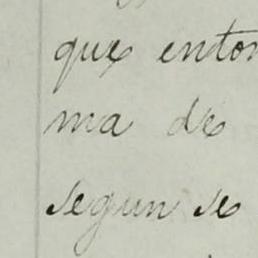 que enton
ma de
segun se